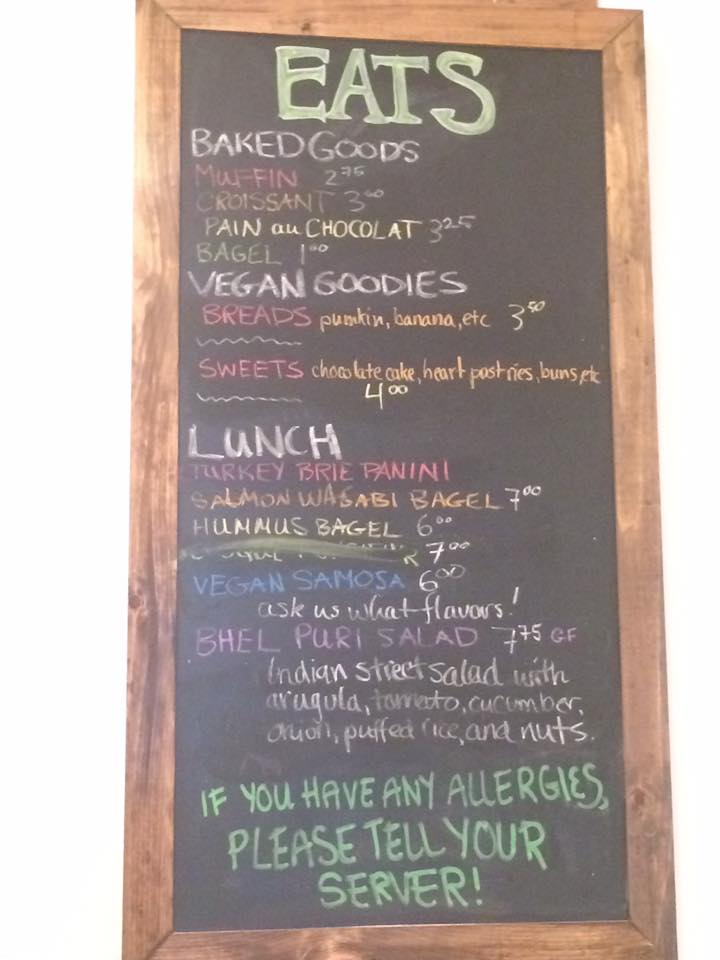 EATS
BAKED GOODS
MUFFIN 2.75
CROISSANT 3.00
PAIN au CHOCOLAT 3.25
BAGEL 1.00
VEGAN GOODIES
BREADS pumkin, banana, etc 3.50
SWEETS chocolate cake, heart pastries, buns, etc
4.00
LUNCH
TURKEY BRIE PANINI
SALMON WASABI BAGEL 7.00
HUMMUS BAGEL 6.00
7.00
VEGAN SAMOSA 6.00
ask us what flavours!
BHEL PURI SALAD 7.75 GF
Indian street salad with
arugula, tomato, cucumber,
onion, puffed rice, and nuts.
IF YOU HAVE ANY ALLERGIES,
PLEASE TELL YOUR
SERVER!